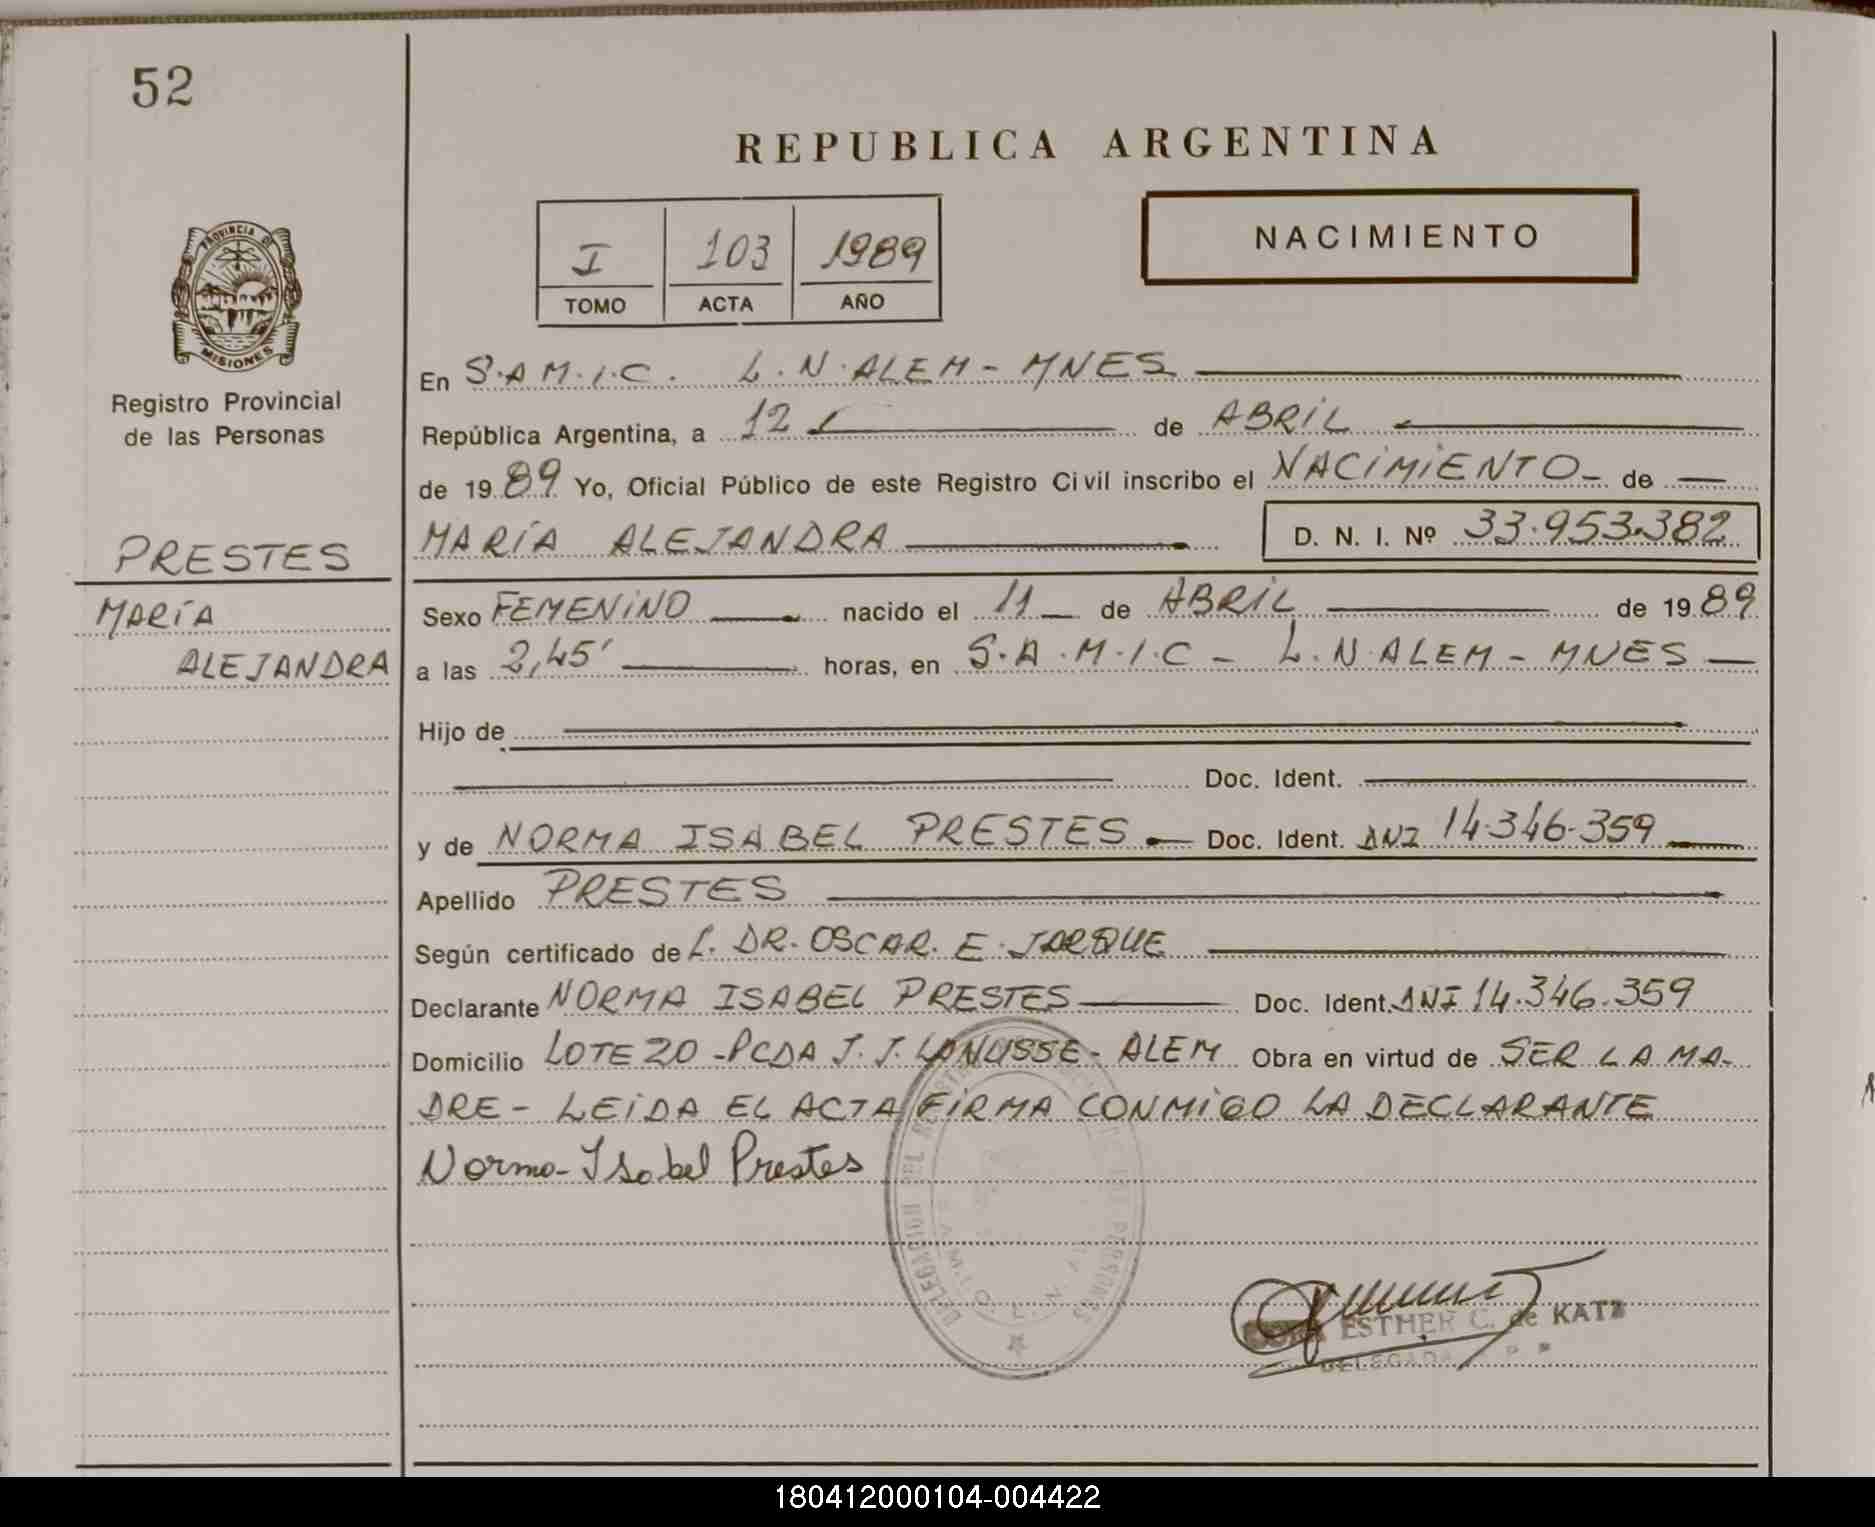 52
REPUBLICA ARGENTINA
I 103 1989
TOMO ACTA AÑO
NACIMIENTO
PROVINCIA DE
MISIONES
Registro Provincial
de las Personas
PRESTES
MARÍA
ALEJANDRA
En S.A.M.I.C. L.N.ALEM - MNES
República Argentina, a 12 de ABRIL
de 1989 Yo, Oficial Público de este Registro Civil inscribo el NACIMIENTO de
MARÍA ALEJANDRA D. N. I. Nº 33.953.382
Sexo FEMENINO nacido el 11 de ABRIL de 1989
a las 2,45' horas, en S.A.M.I.C - L.N.ALEM - MNES
Hijo de
Doc. Ident.
y de NORMA ISABEL PRESTES Doc. Ident. DNI 14.346.359
Apellido PRESTES
Según certificado de L. DR. OSCAR. E. JARQUE
Declarante NORMA ISABEL PRESTES Doc. Ident. DNI 14.346.359
Domicilio LOTE 20 - PCDA J.J. LANUSSE - ALEM Obra en virtud de SER LA MA-
DRE - LEIDA EL ACTA FIRMA CONMIGO LA DECLARANTE
Norma Isabel Prestes
DELEGACION DEL
PERSONAS
ESTHER C. de KATZ
DELEGADA
180412000104-004422